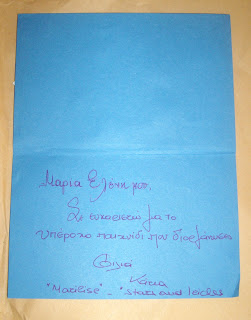 Μαρία Ελένη μου,
Σε ευχαριστώ για το
υπέροχο παιχνίδι που διοργάνωσες
Φιλιά
Κάτια
"Marilise" - "stars and